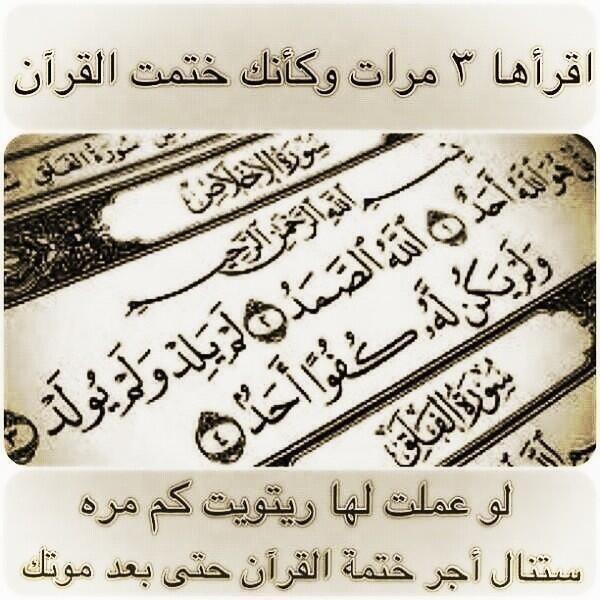 اقرأها ٣ مرات وكأنك ختمت القرآن
سورة الفلق
سورة الإخلاص
بسم الله الرحمن الرحيم
هو الله أحد ١ الله الصمد ٢ لم يلد ولم يولد ٣
ولم يكن له كفوا أحد ٤
سورة الفلق
لو عملت لها ريتويت كم مره
ستنال أجر ختمة القرآن حتى بعد موتك